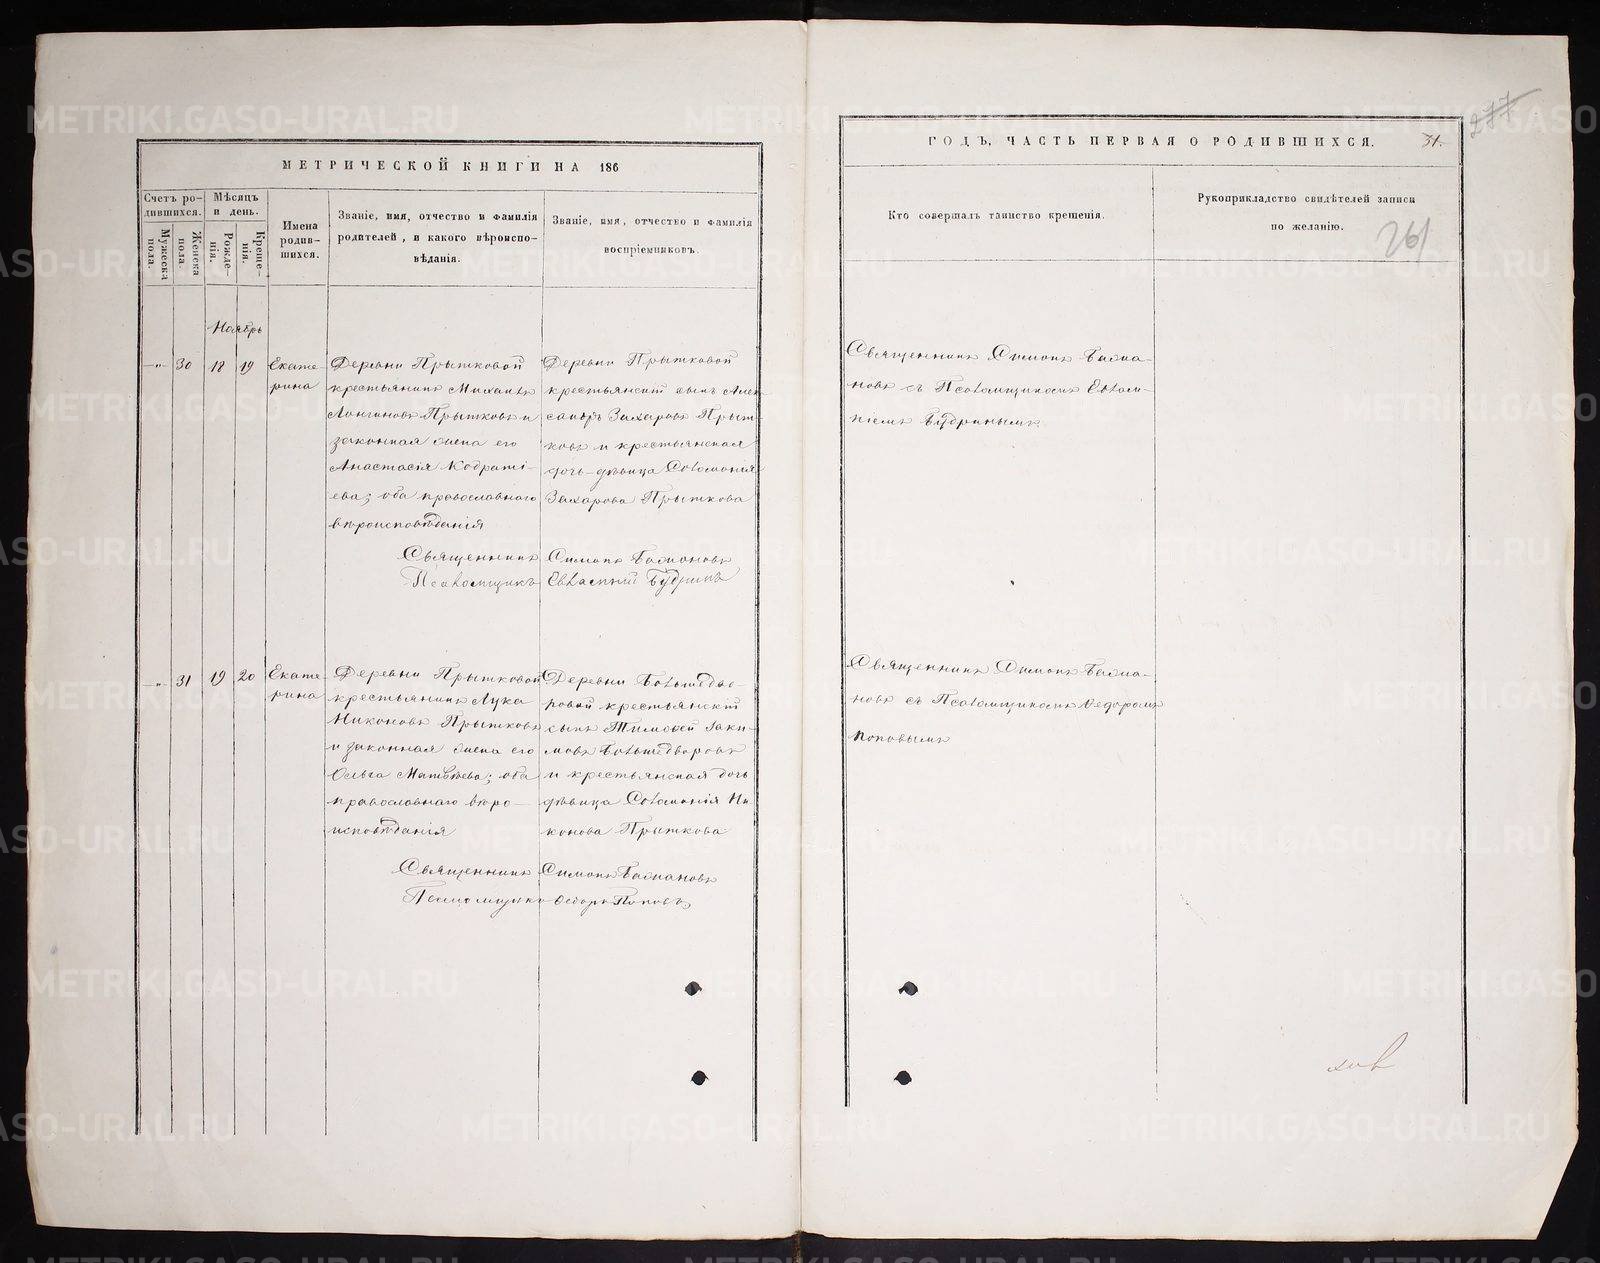 МЕТРИЧЕСКОЙ КНИГИ НА 186
Счетъ ро-
дившихся.
Мѣсяцъ
и день.
Мужеска
пола.
Женска
пола.
Рожде-
нія.
Креще-
нія.
Имена
родив-
шихся.
Званіе, имя, отчество и фамилія
родителей, и какого вѣроиспо-
вѣданія.
Званіе, имя, отчество и фамилія
воспріемниковъ.
Ноябрь
-"- 30 18 19
Екате-
рина
Деревни Прытковой
крестьянинъ Михаилъ
Лонгиновъ Прытковъ и
законная жена его
Анастасія Кодраті-
ева; оба православнаго
вѣроисповѣданія
Деревни Прытковой
крестьянскій сынъ Алек
сандръ Захаровъ Прыт-
ковъ и крестьянская
дочь-дѣвица Соломонія
Захарова Прыткова
Священникъ Симонъ
Псаломщикъ Евлампій Будринъ
-"- 31 19 20
Екате-
рина
Деревни Прытковой
крестьянинъ Лука
Никоновъ Прытковъ
и законная жена его
Ольга Матвѣева; оба
православнаго вѣро-
исповѣданія
Деревни Большедво-
ровой крестьянскій
сынъ Тимофей Іаки-
мовъ Большедворовъ
и крестьянская дочь
дѣвица Соломонія Ни-
конова Прыткова
Священникъ Симонъ
Псаломщикъ Ѳедоръ Поповъ
ГОДЪ, ЧАСТЬ ПЕРВАЯ О РОДИВШИХСЯ.
31.
277
Кто совершалъ таинство крещенія.
Рукоприкладство свидѣтелей записи
по желанію.
261
Священникъ Симонъ
новъ съ Псаломщикомъ Евлам-
піемъ Будринымъ
Священникъ Симонъ
новъ съ Псаломщикомъ Ѳедоромъ
Поповымъ
METRIKI.GASO-URAL.RU